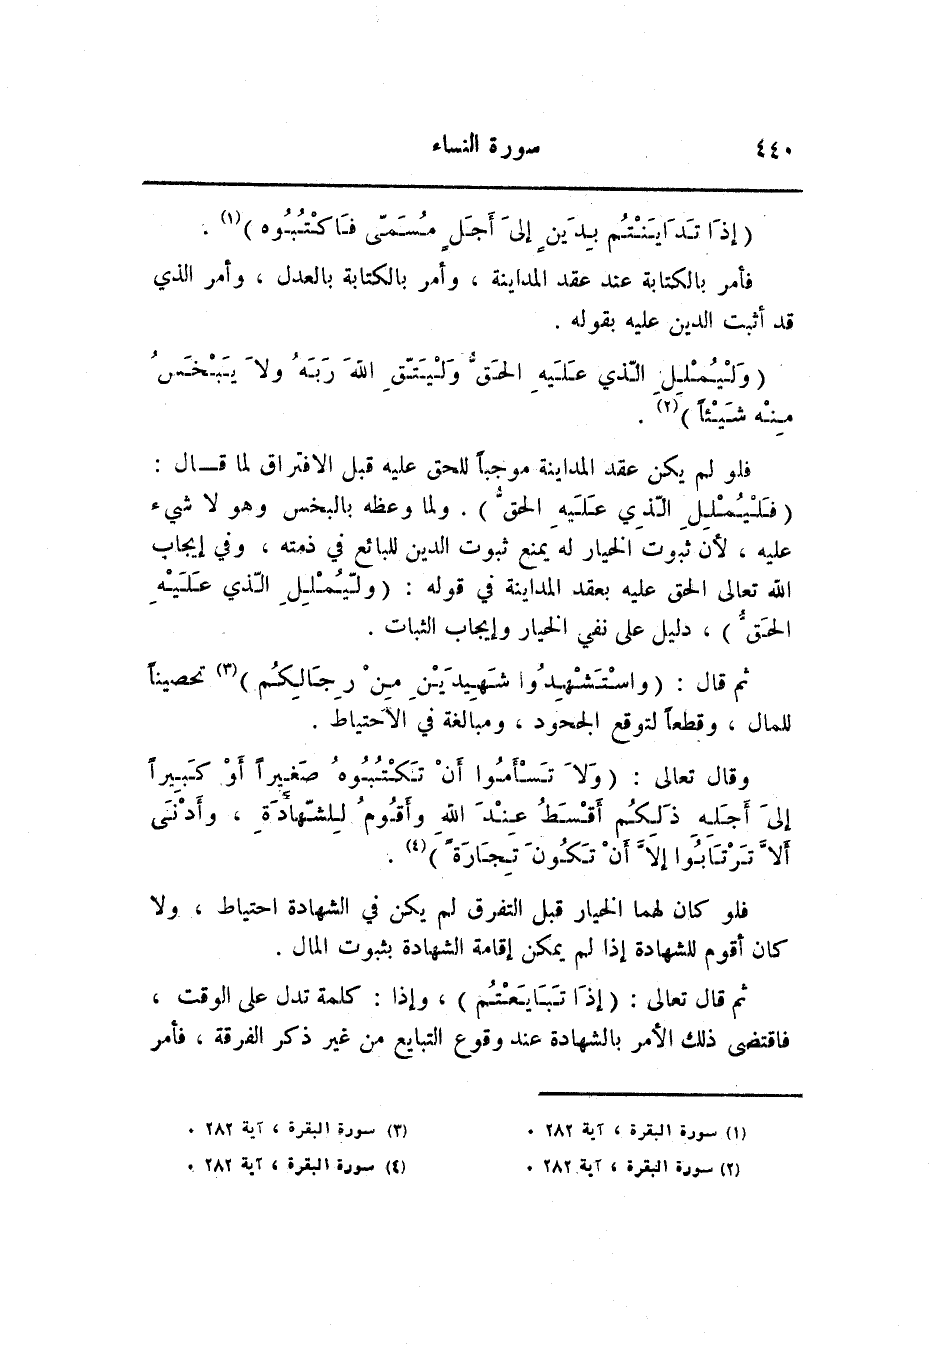 ٤٤٠ سورة النساء
( إذَا تَدَايَنْتُم بِدَينٍ إلىَ أَجَلٍ مُسَمّى فَاكْتُبُوه )(١) .
فأمر بالكتابة عند عقد المداينة ، وأمر بالكتابة بالعدل ، وأمر الذي
قد أثبت الدين عليه بقوله .
( وَلْيُمْلِلِ الّذي عَلَيهِ الحَقُّ وَلْيَتّقِ اللهَ رَبَهُ ولاَ يَبْخَسُ
مِنْه شَيْئاً )(٢) .
فلو لم يكن عقد المداينة موجباً للحق عليه قبل الافتراق لما قـال :
( فَلْيُمْلِلِ الّذِي عَلَيهِ الحَقُّ ) . ولما وعظه بالبخس وهو لا شيء
عليه ، لأن ثبوت الخيار له يمنع ثبوت الدين للبائع في ذمته ، وفي إيجاب
الله تعالى الحق عليه بعقد المداينة في قوله : ( ولْيُمْلِلِ الّذي عَلَيْهِ
الحَقُّ ) ، دليل على نفي الخيار وإيجاب الثبات .
ثم قال : ( واسْتَشْهِدُوا شَهِيدَيْنِ مِنْ رِجَالِكُم )(٣) تحصيناً
للمال ، وقطعاً لتوقع الجحود ، ومبالغة في الاحتياط .
وقال تعالى : ( وَلاَ تَسْأَمُوا أَنْ تَكْتُبُوهُ صَغِيراً أَوْ كَبِيراً
إلىَ أَجَلِهِ ذَلِكُم أَقْسَطُ عِنْدَ اللهِ وأَقْوُمُ لِلشّهَادَةِ ، وأَدْنَى
أَلاَّ تَرْتَابُوا إلاَّ أَنْ تَكُونَ تِجَارَةً )(٤) .
فلو كان لهما الخيار قبل التفرق لم يكن في الشهادة احتياط ، ولا
كان أقوم للشهادة إذا لم يمكن إقامة الشهادة بثبوت المال .
ثم قال تعالى : ( إذَا تَبَايَعْتُم ) ، وإذا : كلمة تدل على الوقت ،
فاقتضى ذلك الأمر بالشهادة عند وقوع التبايع من غير ذكر الفرقة ، فأمر
(١) سورة البقرة ، آية ٢٨٢ .
(٢) سورة البقرة ، آية ٢٨٢ .
(٣) سورة البقرة ، آية ٢٨٢ .
(٤) سورة البقرة ، آية ٢٨٢ .